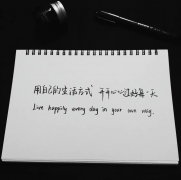 用自己的生活方式 开开心心过好每一天
Live happily every day in your own way.